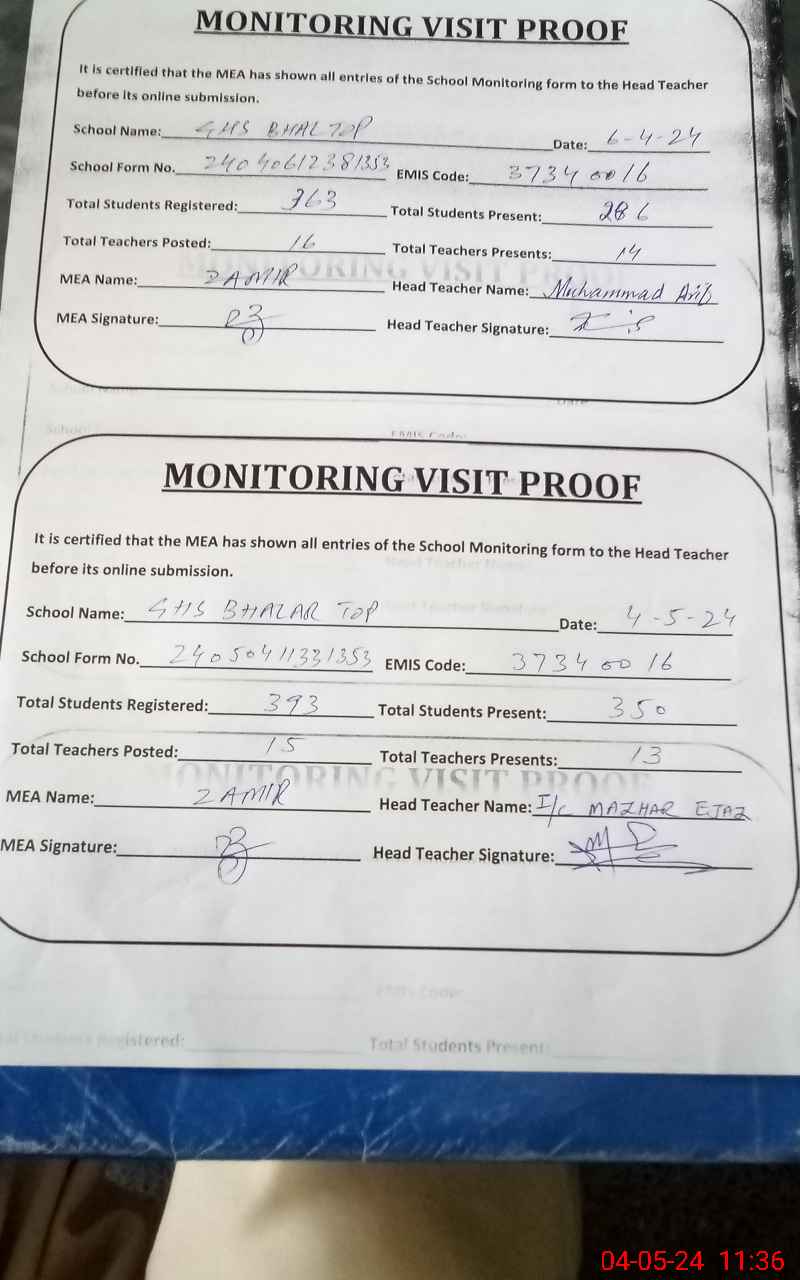 MONITORING VISIT PROOF
It is certified that the MEA has shown all entries of the School Monitoring form to the Head Teacher
before its online submission.
School Name: GHS BHAL TOP Date: 6-4-24
School Form No. 24040612381353 EMIS Code: 37340016
Total Students Registered: 363 Total Students Present: 286
Total Teachers Posted: 16 Total Teachers Presents: 14
MEA Name: ZAMIR Head Teacher Name: Muhammad Arif
MEA Signature: Head Teacher Signature:
EMIS Code:
MONITORING VISIT PROOF
It is certified that the MEA has shown all entries of the School Monitoring form to the Head Teacher
before its online submission.
School Name: GHS BHALAR TOP Date: 4-5-24
School Form No. 24050411331353 EMIS Code: 37340016
Total Students Registered: 393 Total Students Present: 350
Total Teachers Posted: 15 Total Teachers Presents: 13
MONITORING VISIT PROOF
MEA Name: ZAMIR Head Teacher Name: I/c MAZHAR EJAZ
MEA Signature: Head Teacher Signature:
EMIS Code:
Total Students Registered: Total Students Present:
04-05-24 11:36